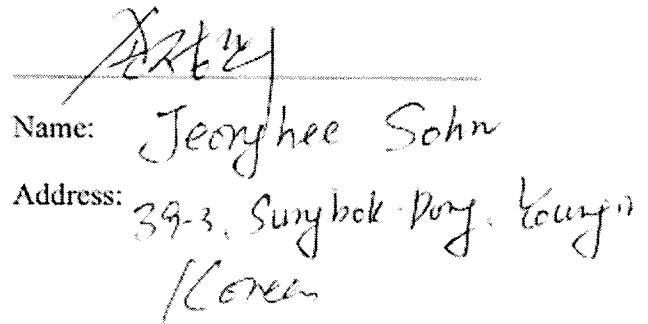 손정희
Name: Jeonghee Sohn
Address: 39-3, Sungbok-Dong, Youngin
Korea